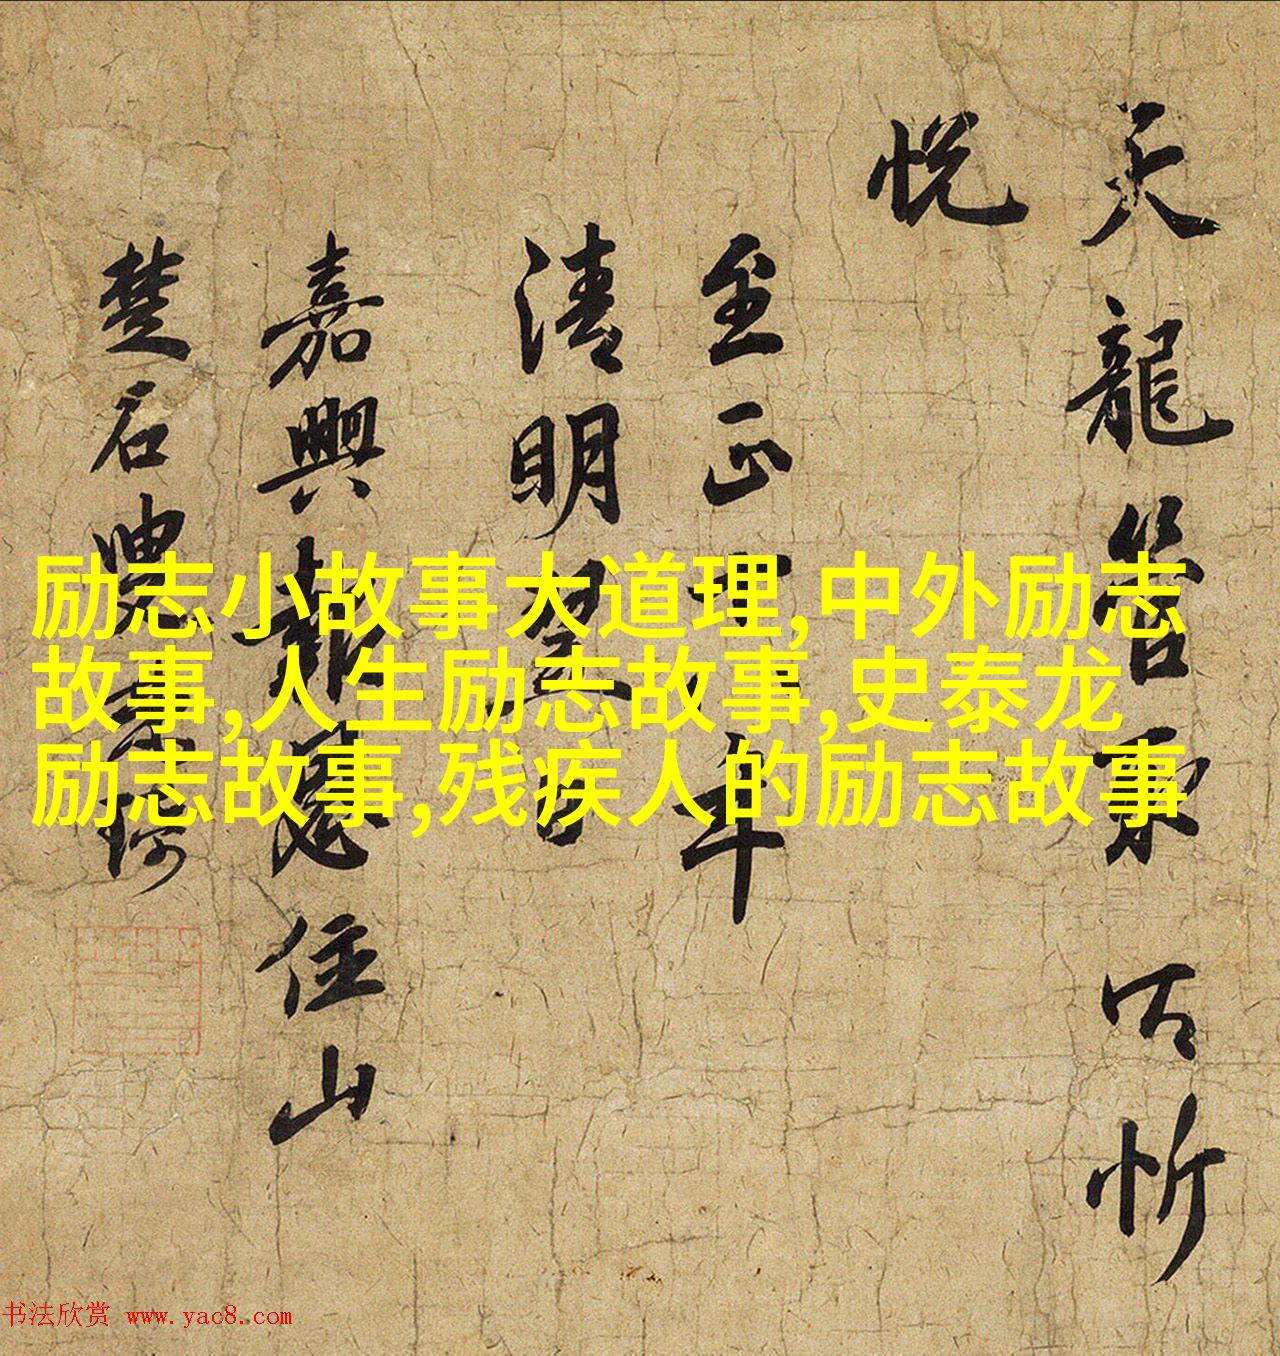 天龍所忻
悦
至正年
清明日
嘉興報恩住山
楚石琦
励志小故事大道理,中外励志
故事,人生励志故事,史泰龙
励志故事,残疾人的励志故事
书法欣赏 www.yac8.com